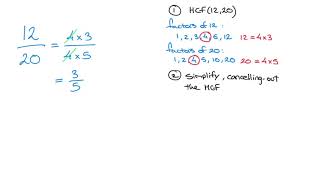 12/20 = 4×3/4×5
= 3/5
① HCF(12,20)
factors of 12:
1, 2, 3, 4, 6, 12 12 = 4×3
factors of 20:
1, 2, 4, 5, 10, 20 20 = 4×5
② Simplify, cancelling out
the HCF